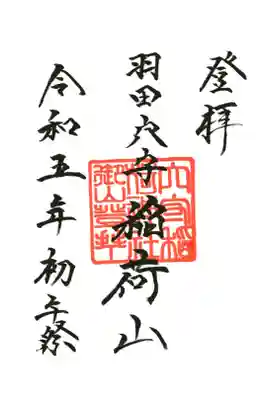 登拝
羽田穴守稲荷山
令和五年初午祭